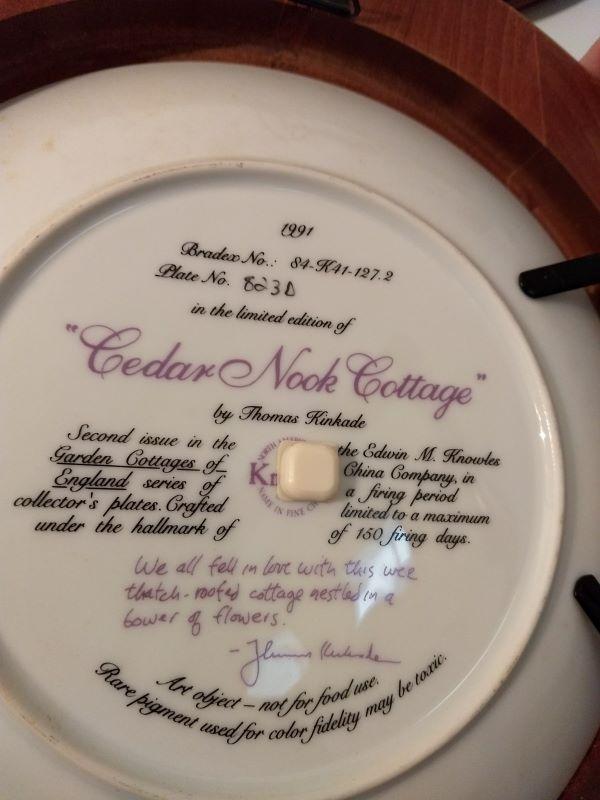 1991
Bradex No.: 84-K41-127.2
Plate No. 823D
in the limited edition of
"Cedar Nook Cottage"
by Thomas Kinkade
Second issue in the
Garden Cottages of
England series of
collector's plates. Crafted
under the hallmark of
Kn
the Edwin M. Knowles
China Company, in
a firing period
limited to a maximum
of 150 firing days.
We all fell in love with this wee
thatch-roofed cottage nestled in a
bower of flowers.
- Thomas Kinkade
Art object – not for food use.
Rare pigment used for color fidelity may be toxic.